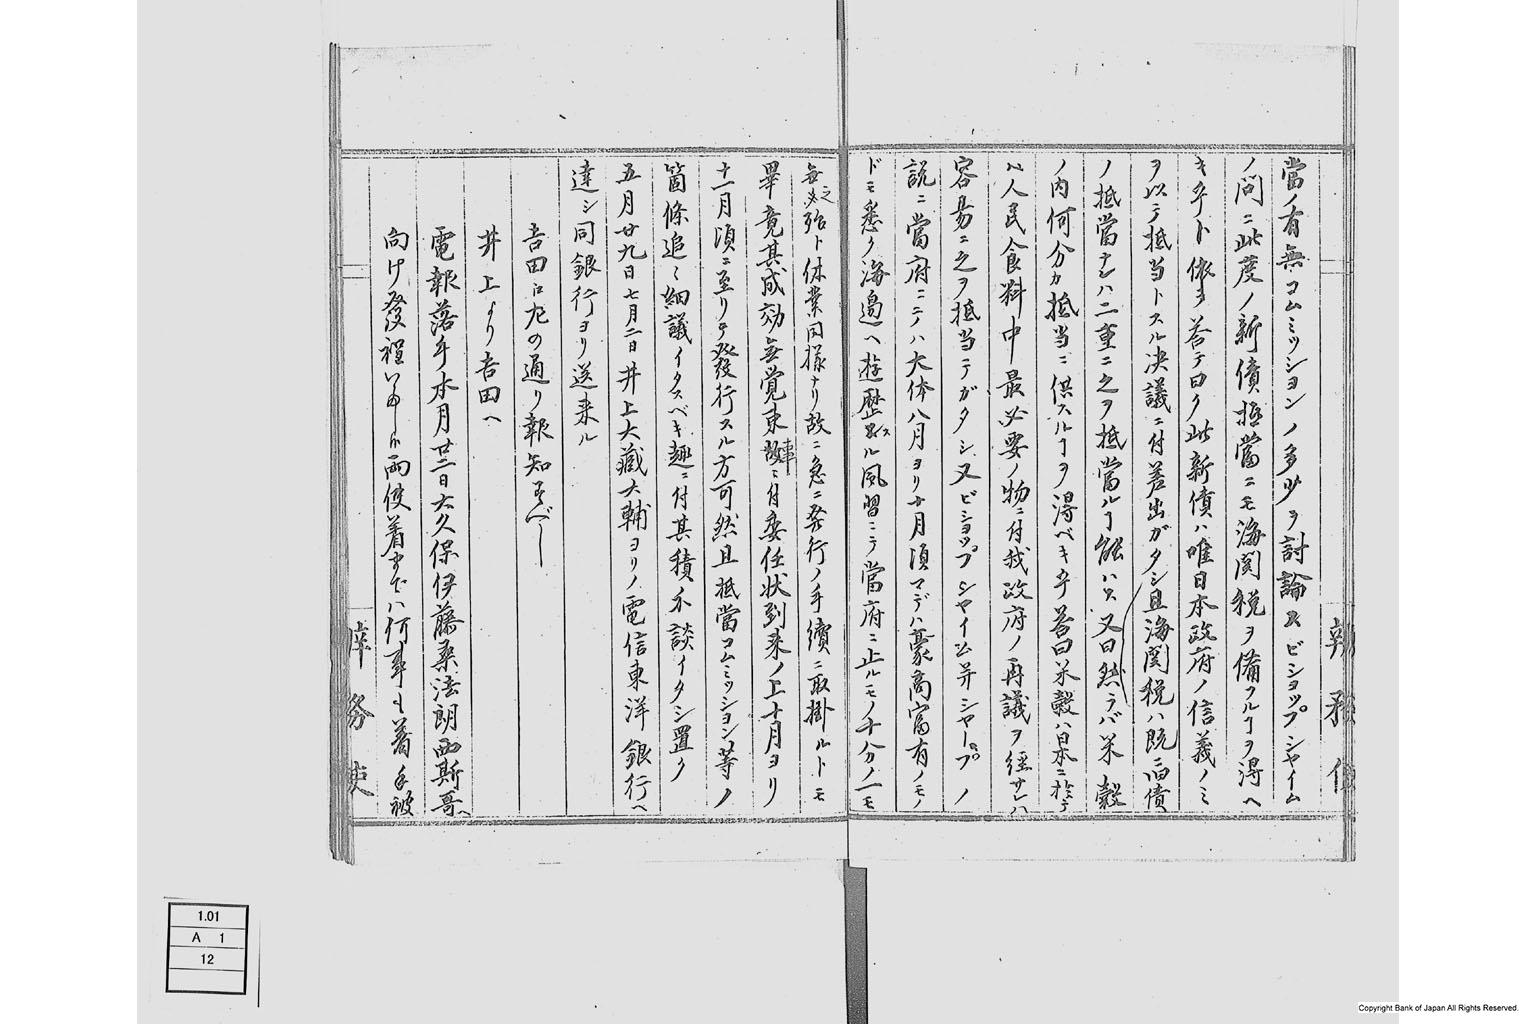 當ノ有無コムミッションノ多少ヲ討論スビショップシヤイム
ノ問ニ此度ノ新債抵當ニモ海関税ヲ備フルヿヲ得ヘ
キ乎ト依テ答テ曰ク此新債ハ唯日本政府ノ信義ノミ
ヲ以テ抵当トスル决議ニ付差出ガタシ且海関税ハ既ニ旧債
ノ抵當ナレハ二重ニ之ヲ抵當ルヿ能ハス又曰然ラバ米穀
ノ内何分カ抵当ニ供スルヿヲ得ベキ乎答曰米穀ハ日本ニ於テ
ハ人民食料中最必要ノ物ニ付我政府ノ再議ヲ経サレハ
容易ニ之ヲ抵当シガタシ又ビショップシヤイム并シヤープノ
説ニ當府ニテハ大体八月ヨリ十月頃マデハ豪商富有ノモノ
ドモ悉ク海邉ヘ遊歴スル風習ニテ當府ニ止ルモノ十分ノ一モ
無之殆ト休業同様ナリ故ニ急ニ発行ノ手續ニ取掛ルトモ
畢竟其成効無覚束事故ニ付委任状到来ノ上十月ヨリ
十一月頃ニ至リテ發行スル方可然且抵當コムミッション等ノ
箇條追々細議イタスベキ趣ニ付其積ニ談イタシ置ク
五月廿九日七月二日井上大藏大輔ヨリノ電信東洋銀行ヘ
達シ同銀行ヨリ送来ル
吉田ニ左の通り報知すべし
井上より吉田へ
電報落手本月廿二日大久保伊藤桑法朗西斯哥
向け發程両使着までハ何事も着手被